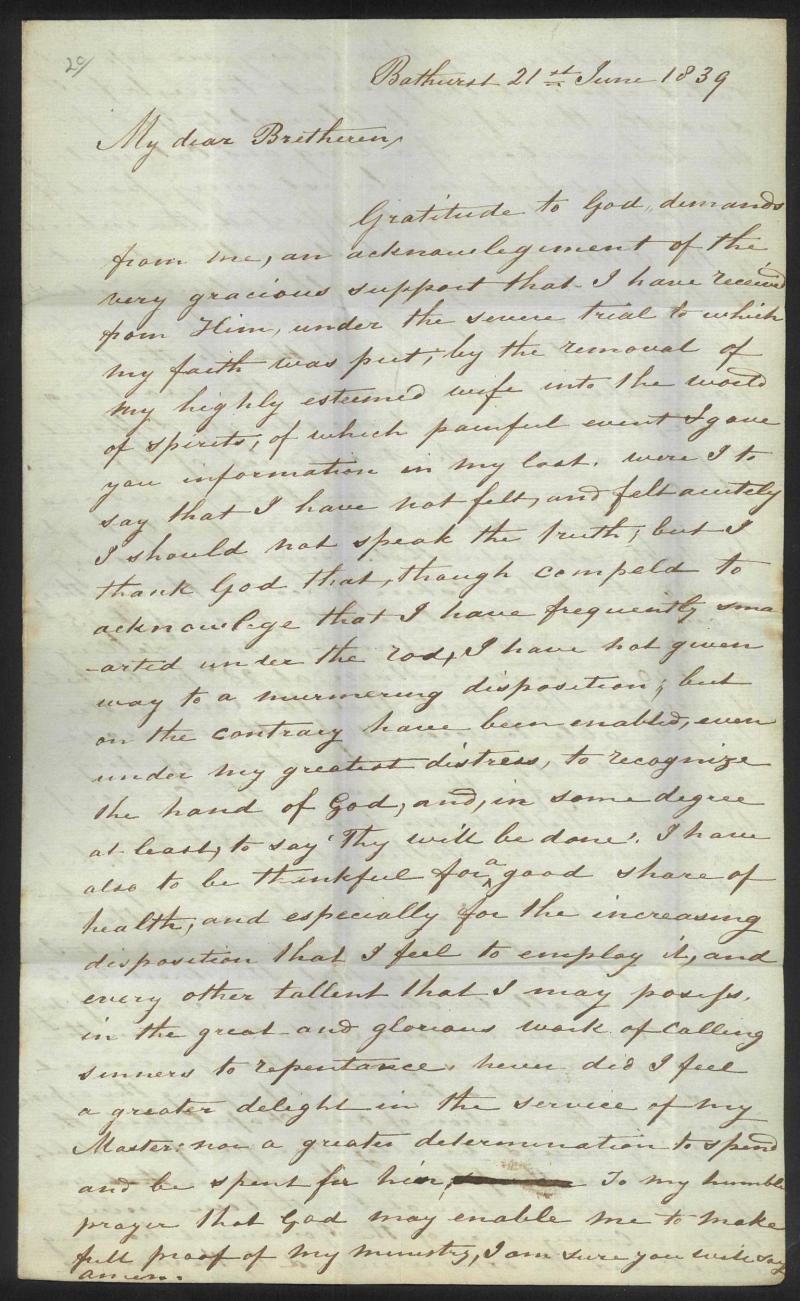 20/
Bathurst 21st June 1839
My dear Bretheren,
Gratitude to God, demands
from me, an acknowlegement of the
very gracious support that I have received
from Him, under the severe trial to which
my faith was put, by the removal of
my highly esteemed wife into the world
of spirits, of which painful event I gave
you information in my last. were I to
say that I have not felt, and felt acutely
I should not speak the truth; but I
thank God that, though compeld to
acknowlege that I have frequently sma
-arted under the rod, I have not given
way to a murmering disposition; but
on the contrary have been enabled, even
under my greatest distress, to recognize
the hand of God, and, in some degree
at least, to say 'Thy will be done'. I have
also to be thinkful for a good share of
health, and especially for the increasing
disposition that I feel to employ it, and
every other tallent that I may possess.
in the great and glorious work of calling
sinners to repentance. never did I feel
a greater delight in the service of my
Master: nor a greater determination to spend
and be spent for him, To my humble
prayer that God may enable me to make
full proof of my ministry, I am sure you will say
amen.